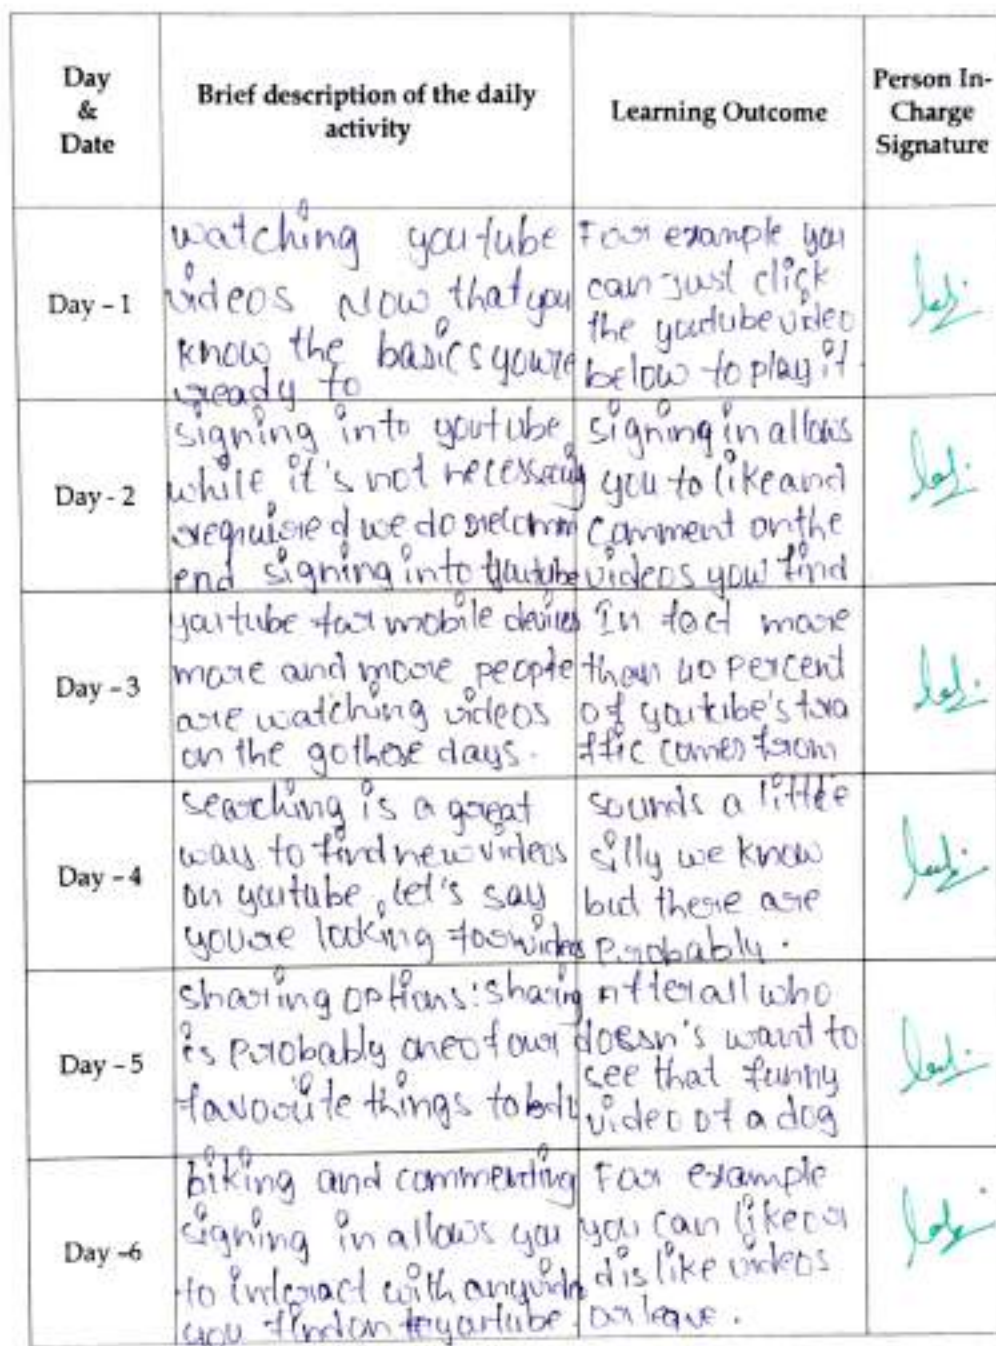 Day
&
Date
Brief description of the daily
activity
Learning Outcome
Person In-
Charge
Signature
Day - 1
watching youtube
videos Now that you
know the basics you're
ready to
For example you
can just click
the youtube video
below to play it.
Day - 2
signing into youtube
while it's not necessarily
required we do recomm
end signing into youtube
signing in allows
you to like and
comment on the
videos you find
Day - 3
youtube for mobile devices
more and more people
are watching videos
on the go these days.
In fact more
than 40 percent
of youtube's tra
ffic comes from
Day - 4
searching is a great
way to find new videos
on youtube, let's say
you're looking for video
sounds a little
silly we know
but there are
probably.
Day - 5
sharing options: sharing
is probably one of our
favourite things to
After all who
doesn's want to
see that funny
video of a dog
Day -6
biking and commenting
signing in allows you
to interact with any
you find on youtube.
For example
you can like or
dislike videos
or leave.